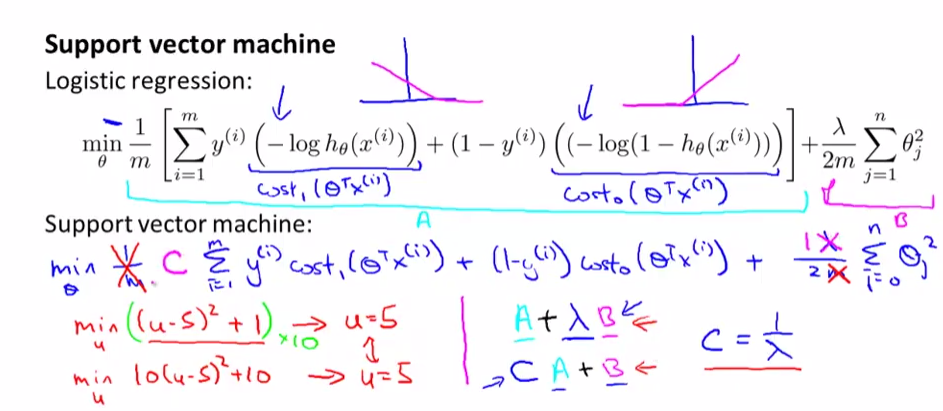 Support vector machine
Logistic regression:
min_θ 1/m [ ∑_{i=1}^{m} y^{(i)} (− log h_θ(x^{(i)})) + (1 − y^{(i)}) ((− log(1 − h_θ(x^{(i)}))) ] + λ/2m ∑_{j=1}^{n} θ_j^2
cost_1(θ^T x^{(i)}) cost_0(θ^T x^{(i)})
Support vector machine: A B
min_θ 1/m C ∑_{i=1}^{m} y^{(i)} cost_1(θ^T x^{(i)}) + (1-y^{(i)}) cost_0(θ^T x^{(i)}) + 1 λ/2m ∑_{i=0}^{n} θ_j^2
min_u ((u-5)^2 + 1) ×10 → u=5 A + λ B ← C = 1/λ
min_u 10(u-5)^2+10 → u=5 → C A + B ←